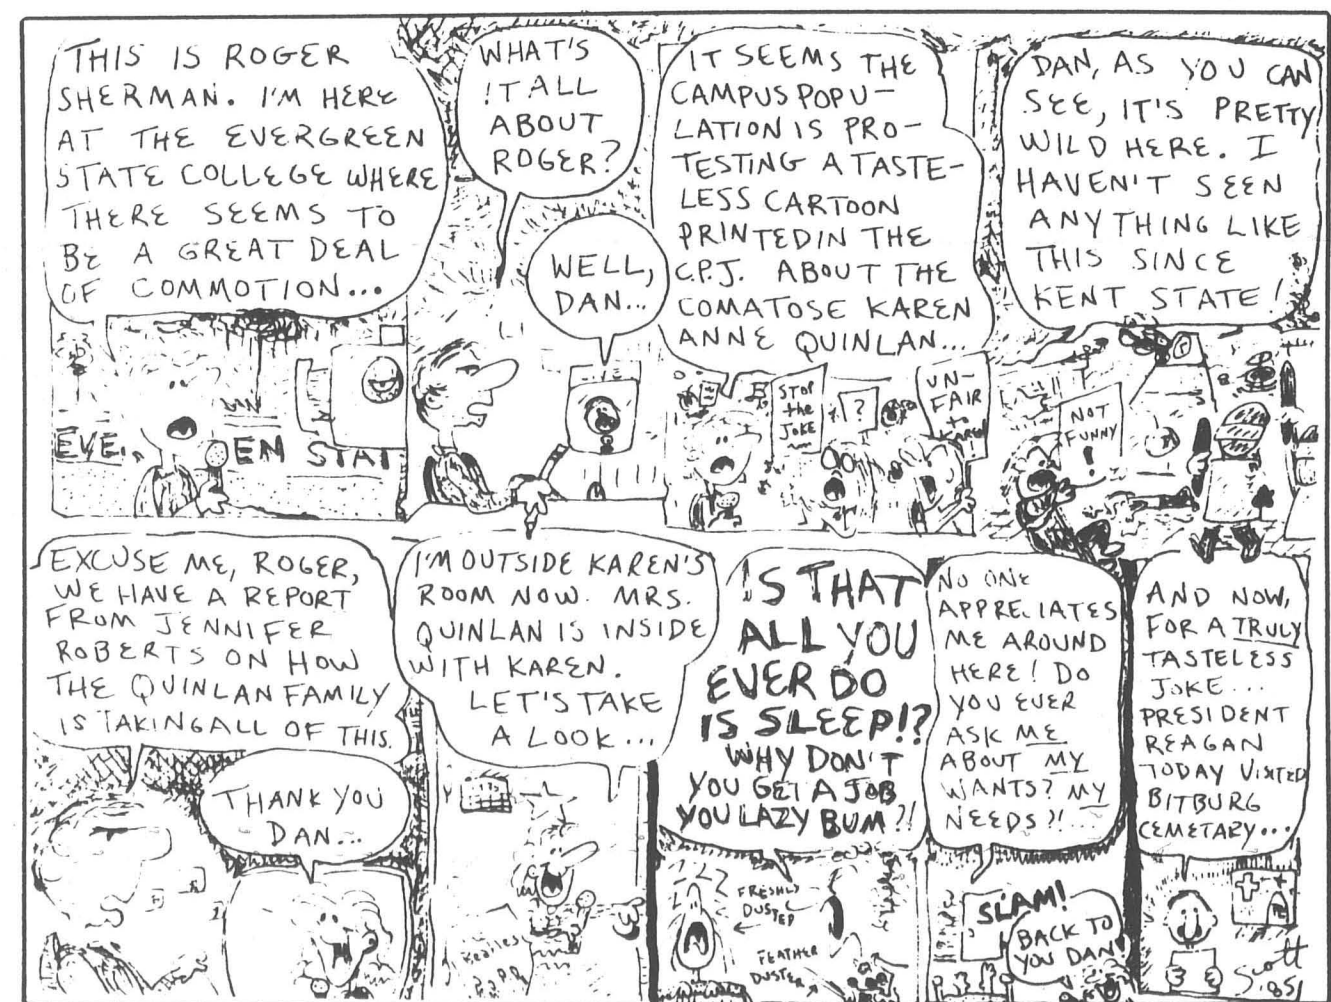 THIS IS ROGER
SHERMAN. I'M HERE
AT THE EVERGREEN
STATE COLLEGE WHERE
THERE SEEMS TO
BE A GREAT DEAL
OF COMMOTION...
EVE
EN STAT
WHAT'S
IT ALL
ABOUT
ROGER?
WELL,
DAN...
IT SEEMS THE
CAMPUS POPU-
LATION IS PRO-
TESTING A TASTE-
LESS CARTOON
PRINTED IN THE
C.P.J. ABOUT THE
COMATOSE KAREN
ANNE QUINLAN...
STOP
the
JOKE
?
UN-
FAIR
to
KAREN
DAN, AS YOU CAN
SEE, IT'S PRETTY
WILD HERE. I
HAVEN'T SEEN
ANYTHING LIKE
THIS SINCE
KENT STATE!
NOT
FUNNY
!
EXCUSE ME, ROGER,
WE HAVE A REPORT
FROM JENNIFER
ROBERTS ON HOW
THE QUINLAN FAMILY
IS TAKING ALL OF THIS.
THANK YOU
DAN...
I'M OUTSIDE KAREN'S
ROOM NOW. MRS.
QUINLAN IS INSIDE
WITH KAREN.
LET'S TAKE
A LOOK...
IS THAT
ALL YOU
EVER DO
IS SLEEP!?
WHY DON'T
YOU GET A JOB
YOU LAZY BUM?!
FRESHLY
DUSTED
FEATHER
DUSTER
NO ONE
APPRECIATES
ME AROUND
HERE! DO
YOU EVER
ASK ME
ABOUT MY
WANTS? MY
NEEDS?!
SLAM!
BACK TO
YOU DAN!
AND NOW,
FOR A TRULY
TASTELESS
JOKE...
PRESIDENT
REAGAN
TODAY VISITED
BITBURG
CEMETARY...
Scott